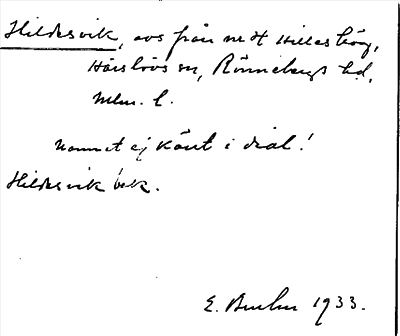 Hildesvik, avs från nr 4 Hilleshög,
Härslövs sn, Rönnebergs hd,
Mlm. l.
Namnet ej känt i dial!
Hildesvik bek.
E. 1933.